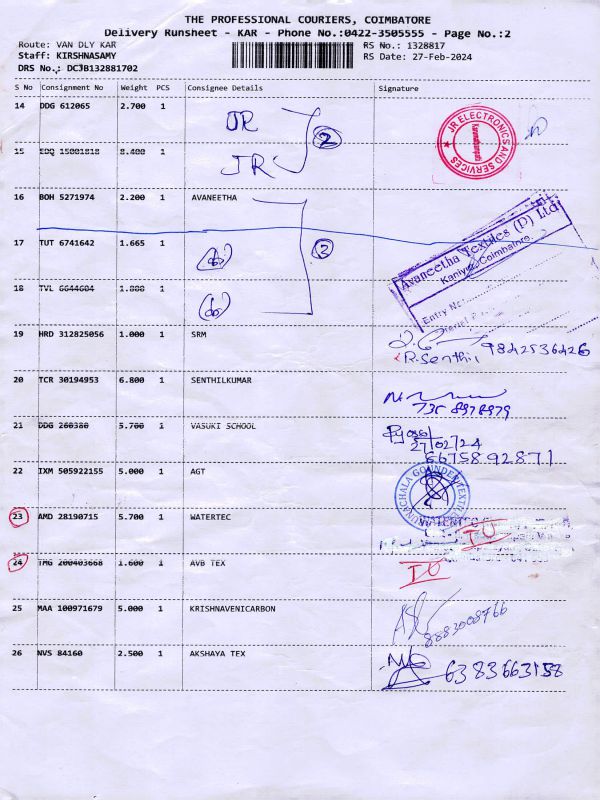 THE PROFESSIONAL COURIERS, COIMBATORE
Delivery Runsheet - KAR - Phone No.:0422-3505555 - Page No.:2
Route: VAN DLY KAR
RS No.: 1328817
Staff: KIRSHNASAMY
RS Date: 27-Feb-2024
DRS No.: DCJB132881702
S No Consignment No Weight PCS Consignee Details Signature
14 DDG 612065 2.700 1 JR 2
JR ELECTRONICS AND SERVICES
15 EDQ 15001818 8.400 1 JR
16 BOH 5271974 2.200 1 AVANEETHA
Avaneetha Textiles (P) Ltd
Kaniyur, Coimbatore.
Entry No:
17 TUT 6741642 1.665 1 (do) 2
18 TVL 6644604 1.000 1 (do)
19 HRD 312825056 1.000 1 SRM
R. Senthil 9842536426
20 TCR 30194953 6.800 1 SENTHILKUMAR
21 DDG 260380 5.700 1 VASUKI SCHOOL
27/02/24
6675892871
22 IXM 505922155 5.000 1 AGT
23 AMD 28190715 5.700 1 WATERTEC
24 TMG 200403668 1.600 1 AVB TEX
25 MAA 100971679 5.000 1 KRISHNAVENICARBON
8883008766
26 NVS 84160 2.500 1 AKSHAYA TEX
6383663158